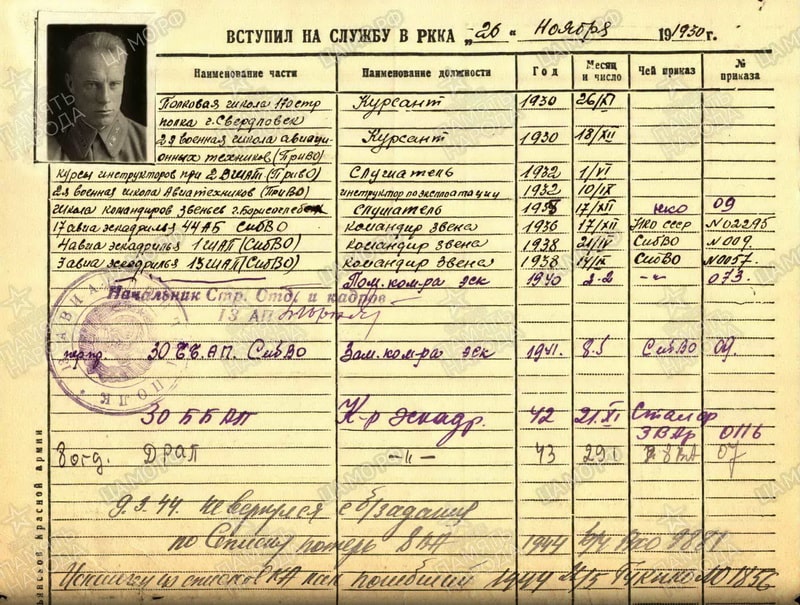 ВСТУПИЛ НА СЛУЖБУ В РККА „26" Ноября 19 1930 г.
Наименование части Наименование должности Год Месяц и число Чей приказ № приказа
Полковая школа 170 стр Курсант 1930 26/XI
полка г. Свердловск
2я военная школа авиаци- Курсант 1930 18/XII
онных техников (ПриВО)
Курсы инструкторов при 2ВШАТ (ПриВО) Слушатель 1932 1/VI
2я военная школа Авиатехников (ПриВО) инструктор по эксплоатации 1932 10/IX
Школа командиров звеньев г. Борисоглебск Слушатель 17/XII НКО 09
17 авиа эскадрилья 44АБ СибВО Командир звена 1936 17/XII НКО СССР N02295
4 авиа эскадрилья 1 ШАП (СибВО) Командир звена 1938 21/IV СибВО N009.
3 авиа эскадрилья 13 ШАП (СибВО) Командир звена 1938 СибВО N0057.
Пом. ком-ра эск 1940 2.2 -"- 073.
Начальник Стр. Отд. и кадров
13 АП
30 ББ. АП. СибВО Зам. ком-ра эск 1941. 8.5 СибВО 09.
30 ББАП К-р эскадр. 42 21.XI
8 огд. ДРАП -"- 43 29.1 8 ВА 07
9.3.44. не вернулся с б/задания
по списку потерь 8ВА 1944
Исключен из списков КА как погибший 1944
ской Красной армии
ПАМЯТЬ НАРОДА
ЦАМО РФ